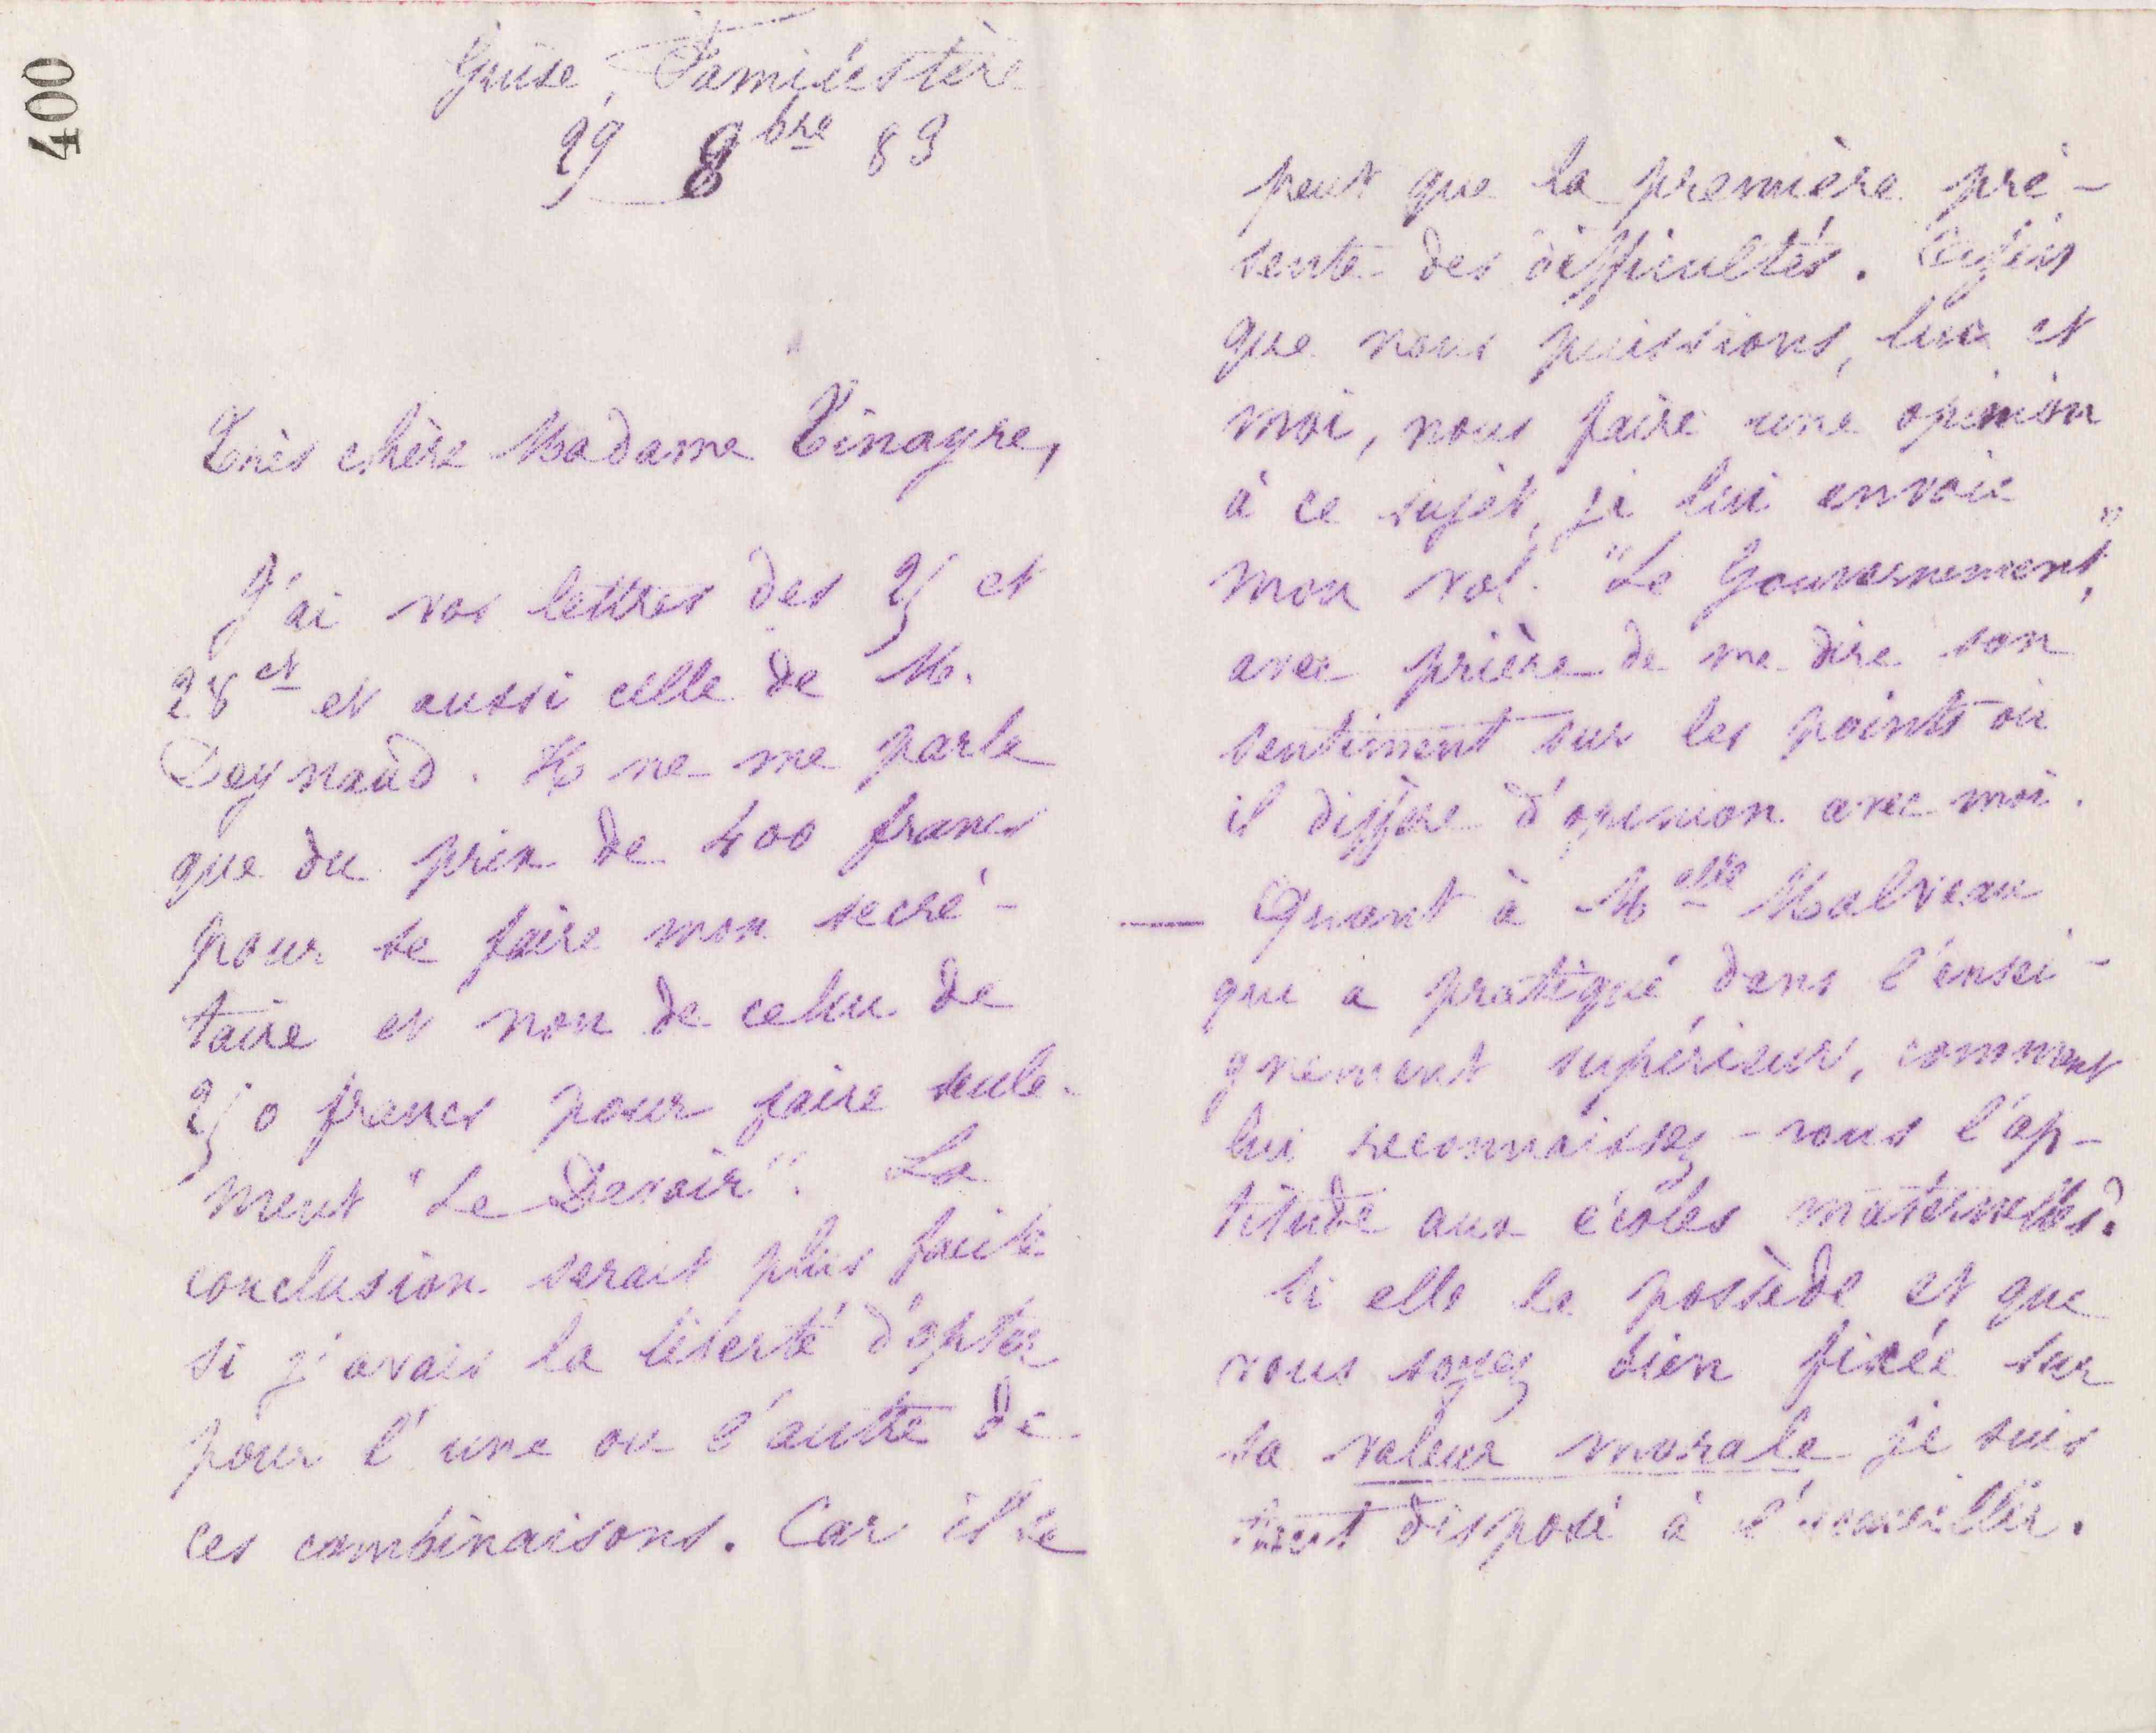 400
Guise, Familistère
29 8bre 83
Très chère Madame Tinayre,
J'ai vos lettres des 25 et
28 ct et aussi celle de M.
Deynaud. Il ne me parle
que du prix de 400 francs
pour se faire mon secré-
taire et non de celui de
250 francs pour faire seule-
ment "Le Devoir". La
conclusion serait plus facile
si j'avais la liberté d'opter
pour l'une ou l'autre de
ces combinaisons. Car il se
peut que la première pré-
sente des difficultés. Afin
que nous puissions, lui et
moi, nous faire une opinion
à ce sujet, je lui envoie
mon vol. "Le Gouvernement,"
avec prière de me dire son
sentiment sur les points où
il diffère d'opinion avec moi.
— Quant à Melle Malveau
qui a pratiqué dans l'ensei-
gnement supérieur, comment
lui reconnaissez-vous l'ap-
titude aux écoles maternelles?
Si elle la possède et que
vous soyez bien fixée sur
sa valeur morale je suis
tout disposé à l'accueillir.